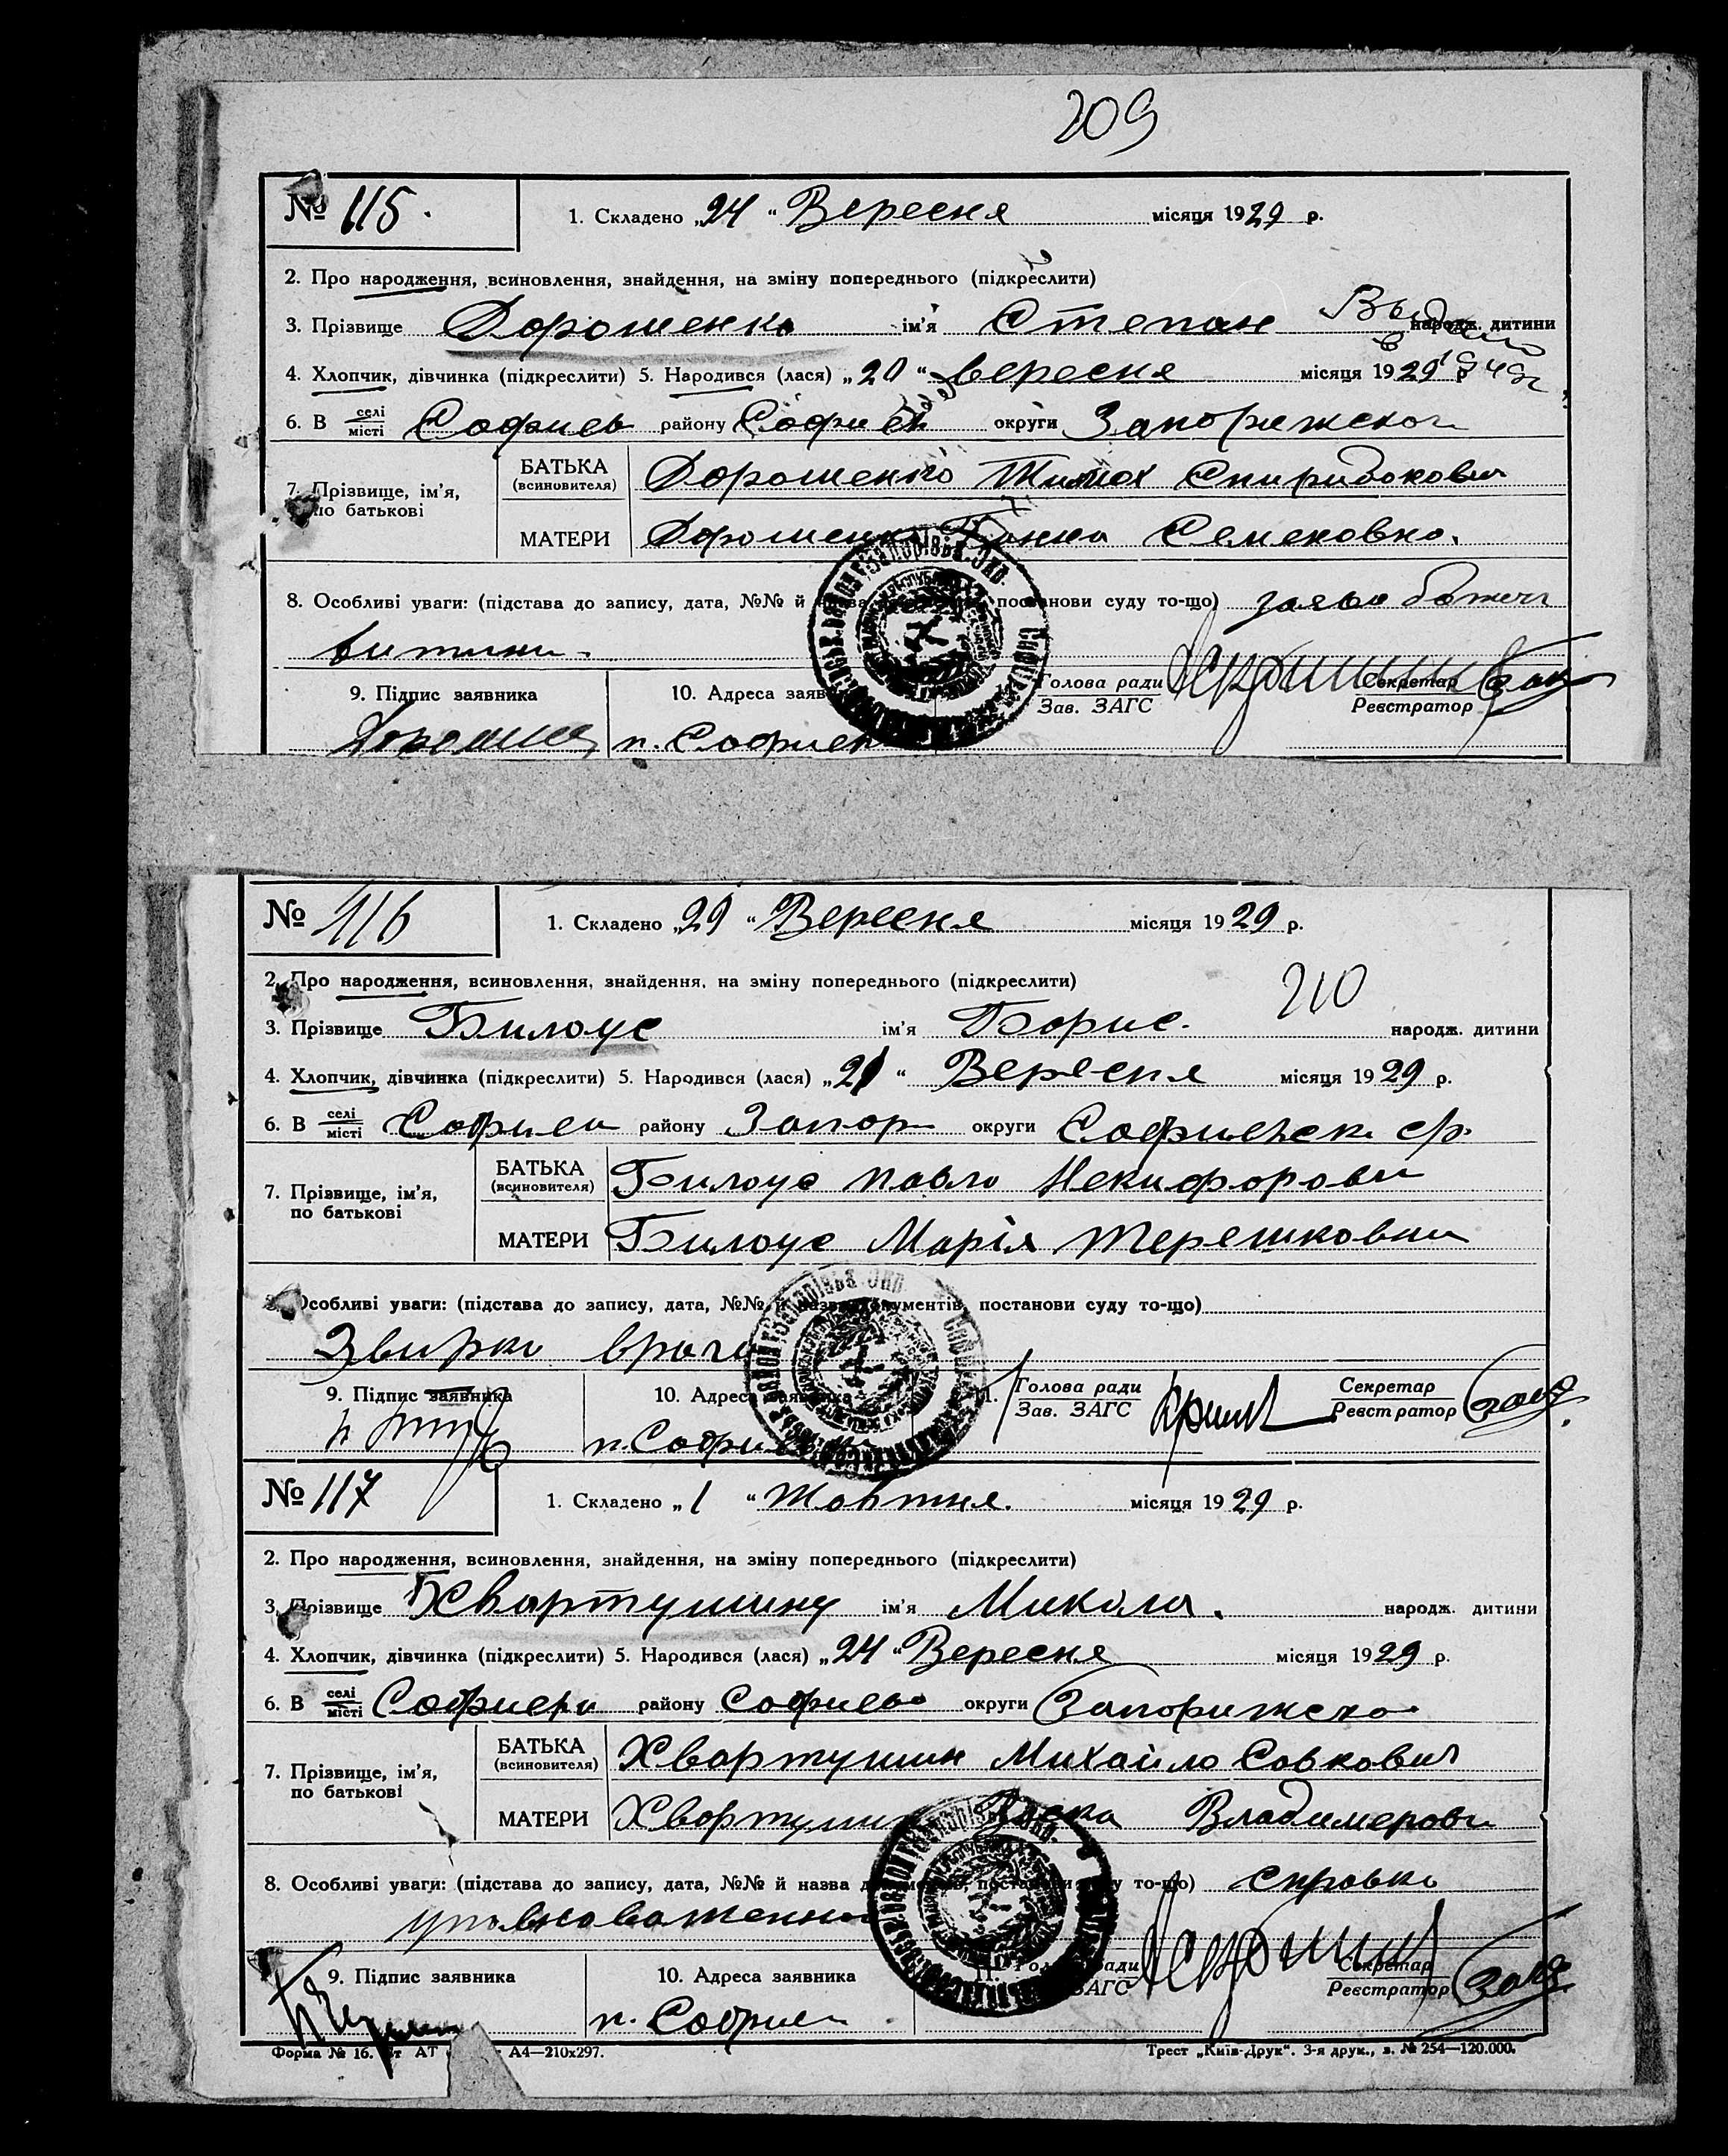 209
№ 115.
1. Складено „24“ Вересня місяця 1929 р.
2. Про народження, всиновлення, знайдення, на зміну попереднього (підкреслити)
3. Прізвище Дорошенко ім'я Степан народж. дитини
4. Хлопчик, дівчинка (підкреслити) 5. Народився (лася) „20“ вересня місяця 1929 р
6. В селі місті Софиев району Софиев округи Запорижског
7. Прізвище, ім'я, по батькові
БАТЬКА (всиновителя) Дорошенко Тимох Спиридонович
МАТЕРИ Семеновна.
8. Особливі уваги: (підстава до запису, дата, №№ й постанови суду то-що) заява
9. Підпис заявника 10. Адреса Голова ради Зав. ЗАГС Секретар Реєстратор
п. Софиев
№ 116
1. Складено „29“ Вересня місяця 1929 р.
2. Про народження, всиновлення, знайдення, на зміну попереднього (підкреслити)
210
3. Прізвище Билоус ім'я Борис. народж. дитини
4. Хлопчик, дівчинка (підкреслити) 5. Народився (лася) „21“ Вересня місяця 1929 р.
6. В селі місті Софиев району Запор округи Софиевск с/р.
7. Прізвище, ім'я, по батькові
БАТЬКА (всиновителя) Билоус Павло Некифорови
МАТЕРИ Билоус Марія Терешковни
8. Особливі уваги: (підстава до запису, дата, №№ й назва документів, постанови суду то-що)
9. Підпис заявника 10. Адреса заявника 11. Голова ради Зав. ЗАГС Секретар Реєстратор
п. Софиев
№ 117
1. Складено „1“ Жовтня. місяця 1929 р.
2. Про народження, всиновлення, знайдення, на зміну попереднього (підкреслити)
3. Прізвище Хвартушину ім'я Микола. народж. дитини
4. Хлопчик, дівчинка (підкреслити) 5. Народився (лася) „24“ Вересня місяця 1929 р.
6. В селі місті Софиевк району Софиево округи Запорижско
7. Прізвище, ім'я, по батькові
БАТЬКА (всиновителя) Хвартушин Михайло Савкович
МАТЕРИ Хвартушин Владимеровн
8. Особливі уваги: (підстава до запису, дата, №№ й назва документів, постанови суду то-що) справка
9. Підпис заявника 10. Адреса заявника 11. Голова ради ЗАГС Секретар Реєстратор
п. Софиев
Форма № 16. А4—210х297. Трест „Київ-Друк“. 3-я друк., з. № 254—120.000.